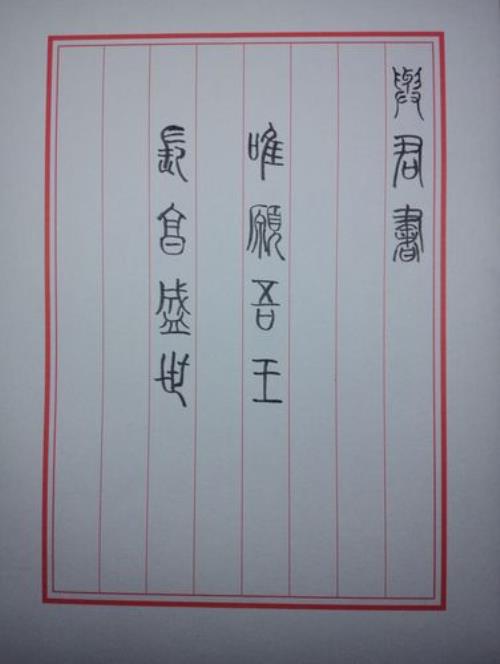 與君書
唯願吾王
長享盛世